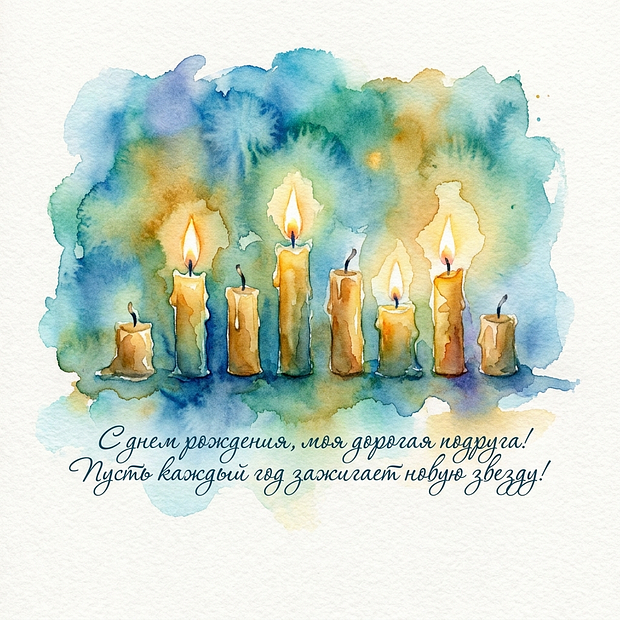 С днем рождения, моя дорогая подруга!
Пусть каждый год зажигает новую звезду!